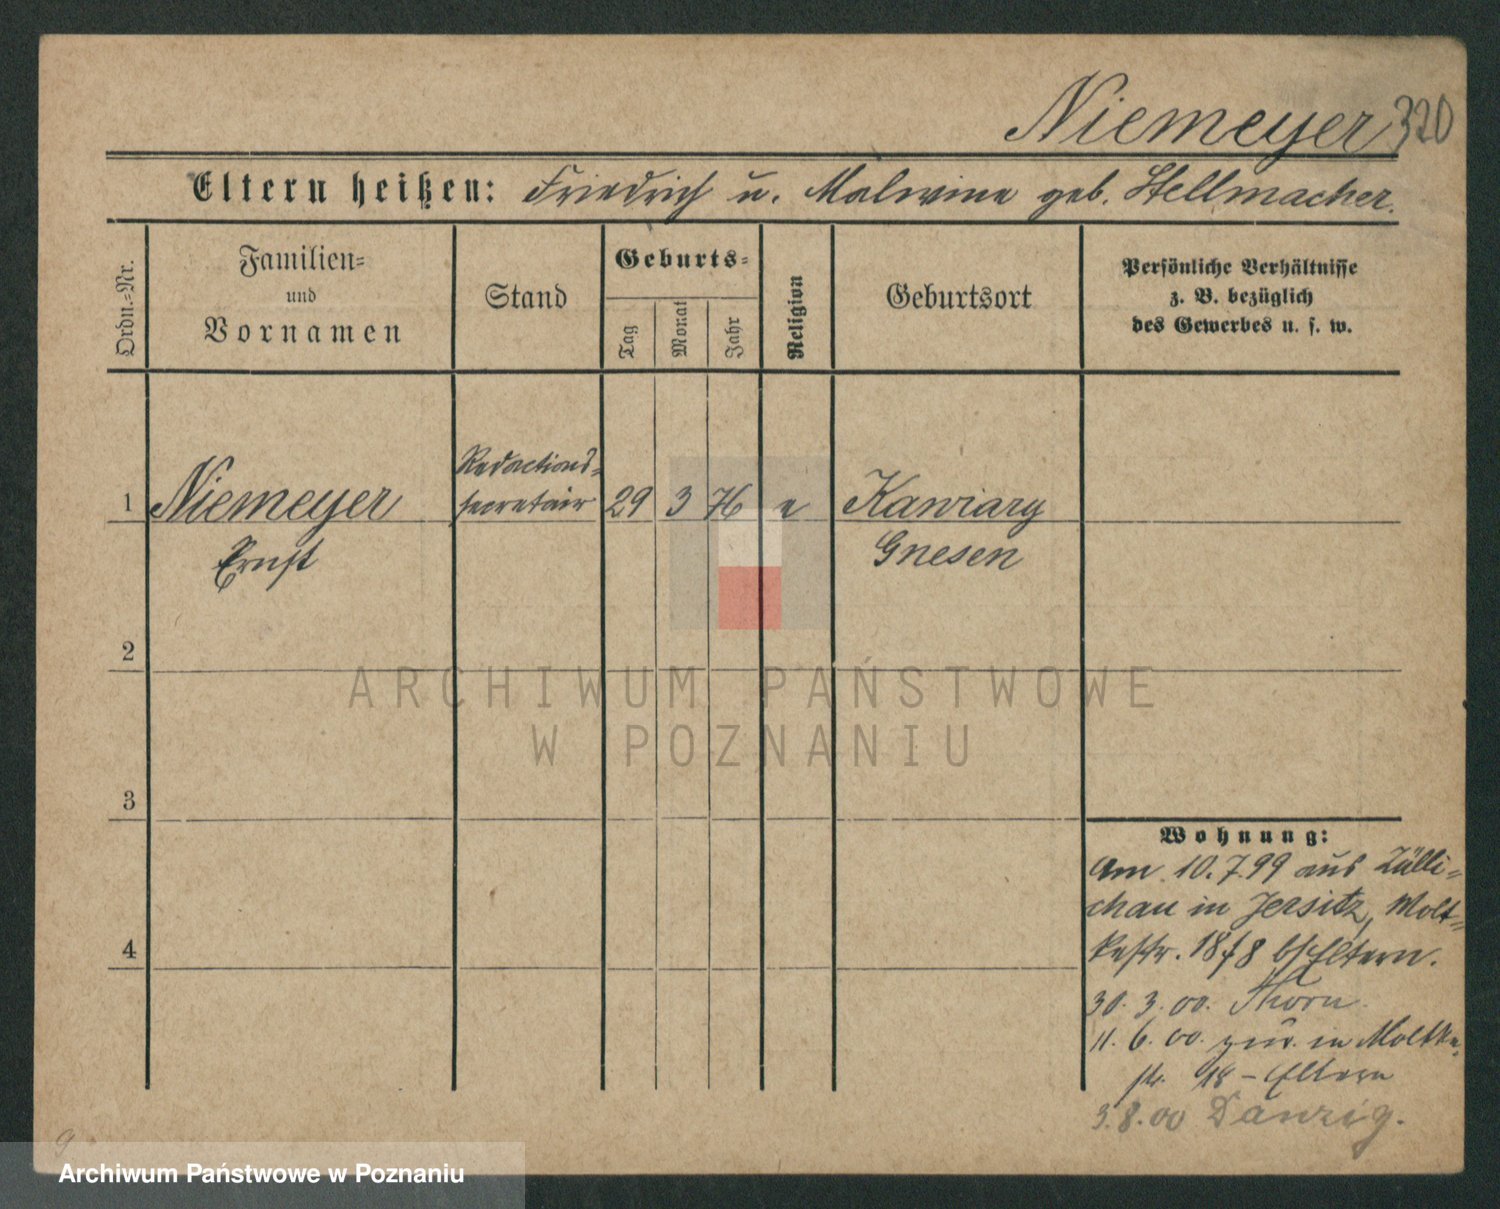 Niemeyer 320
Eltern heißen: Friedrich u. Malwine geb. Stellmacher.
Ordn.=Nr.
Familien=
und
Vornamen
Stand
Geburts=
Tag
Monat
Jahr
Religion
Geburtsort
Persönliche Verhältnisse
z. B. bezüglich
des Gewerbes u. s. w.
Redactions=
1 Niemeyer secretair 29 3 76 e Kawiary
Ernst Gnesen
2
ARCHIWUM PAŃSTWOWE
W POZNANIU
3
Wohnung:
Am 10.7.99 aus Zülli=
chau in Jersitz, Molt=
kestr. 18 Eltern.
4
30. 3. 00. Thorn.
11. 6. 00. zur. in Moltke
str. 18 – Eltern
3.8.00 Danzig.
9
Archiwum Państwowe w Poznaniu